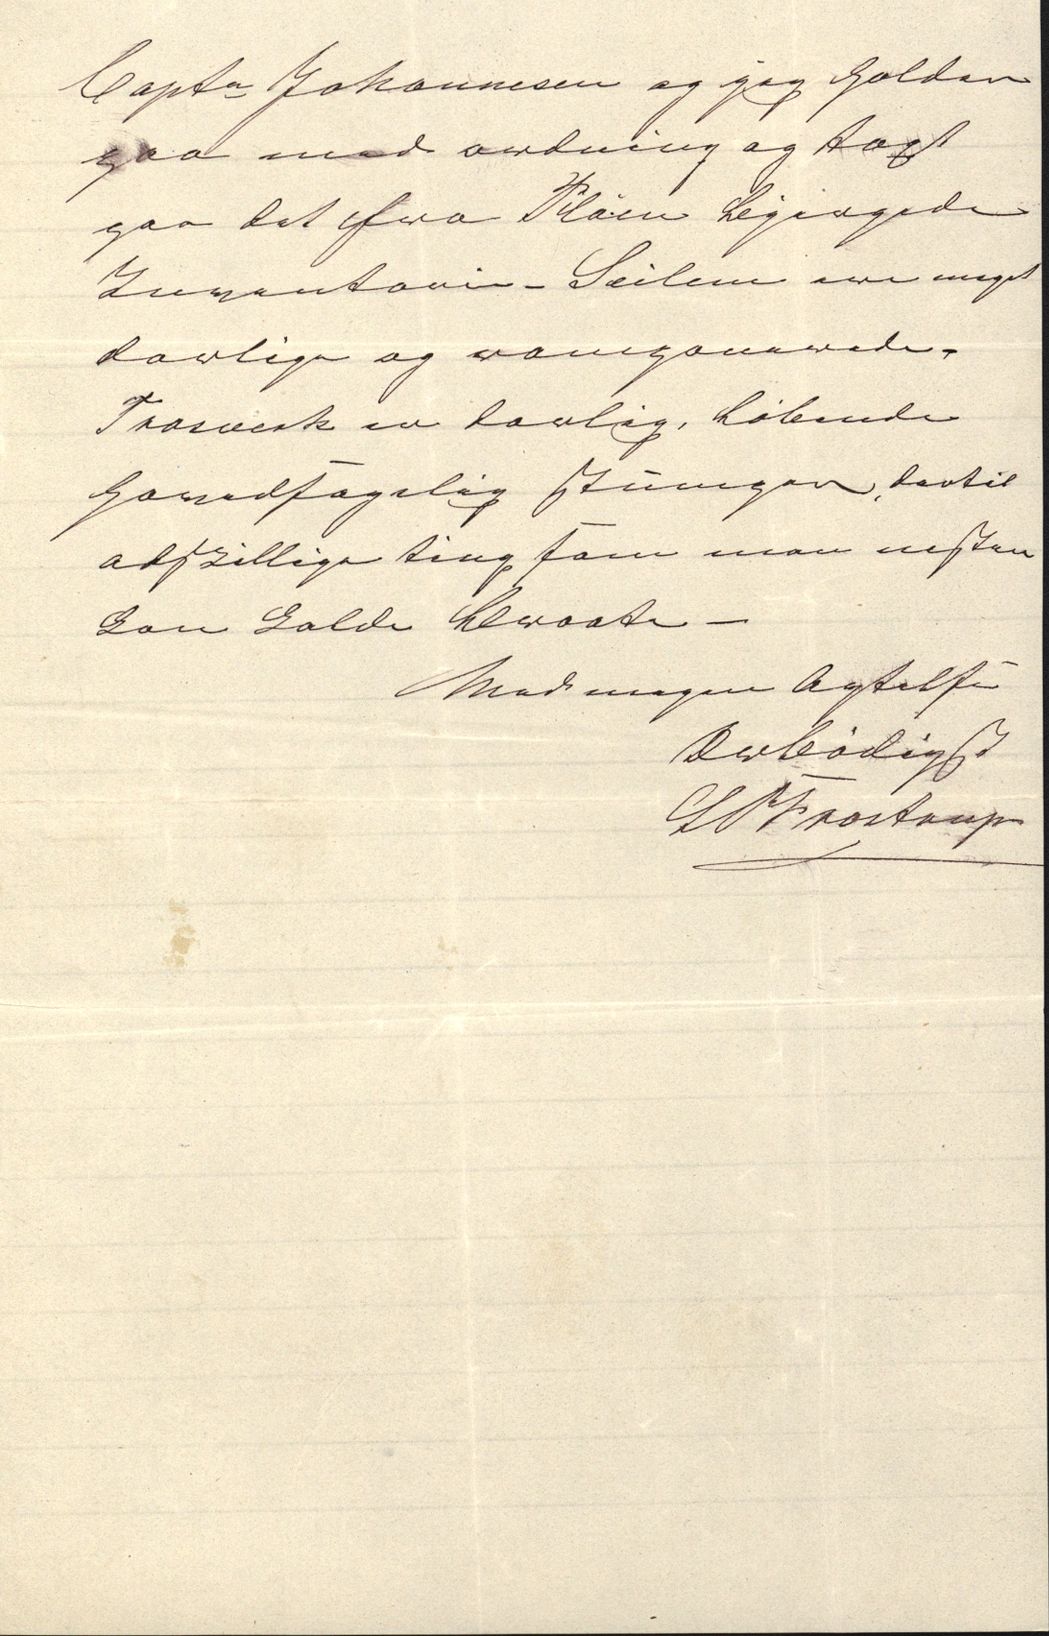 Captn Johannesen og jeg holder
paa med ordning og tagst
paa det fra Flöien bjergede
Inventarie - Seilene ere meget
darlige og ramponerede.
Trosverk er darlig, löbende
hovedsagelig stumper, dertil
adskillige ting som man nesten
kan kalde bevaate -
Med megen Agtelse
Ærbödigst
Frostrup